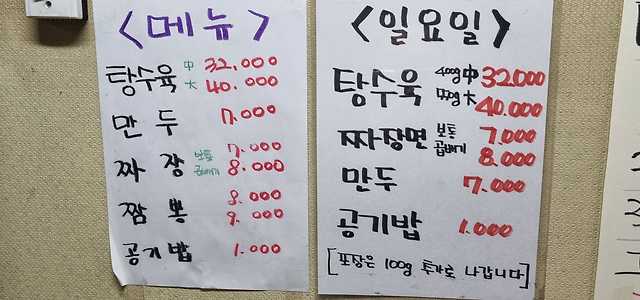 <메뉴>
탕수육 中 32,000
大 40,000
만두 7,000
짜장 보통 7,000
곱빼기 8,000
짬뽕 8,000
9,000
공기밥 1,000
<일요일>
탕수육 400g 中 32,000
大 40,000
짜장면 보통 7,000
곱빼기 8,000
만두 7,000
공기밥 1,000
[포장은 100g 추가로 나갑니다]